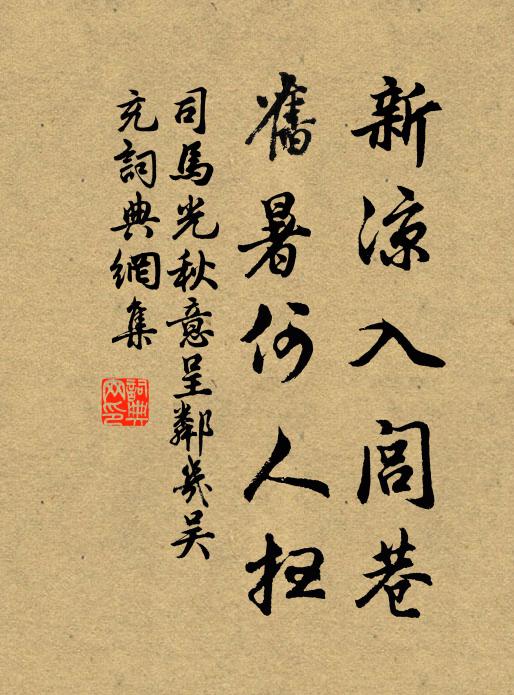 新涼入閭巷
舊暑何人扫
司馬光秋意呈鄰幾吴
充詞典網集
詞典網印